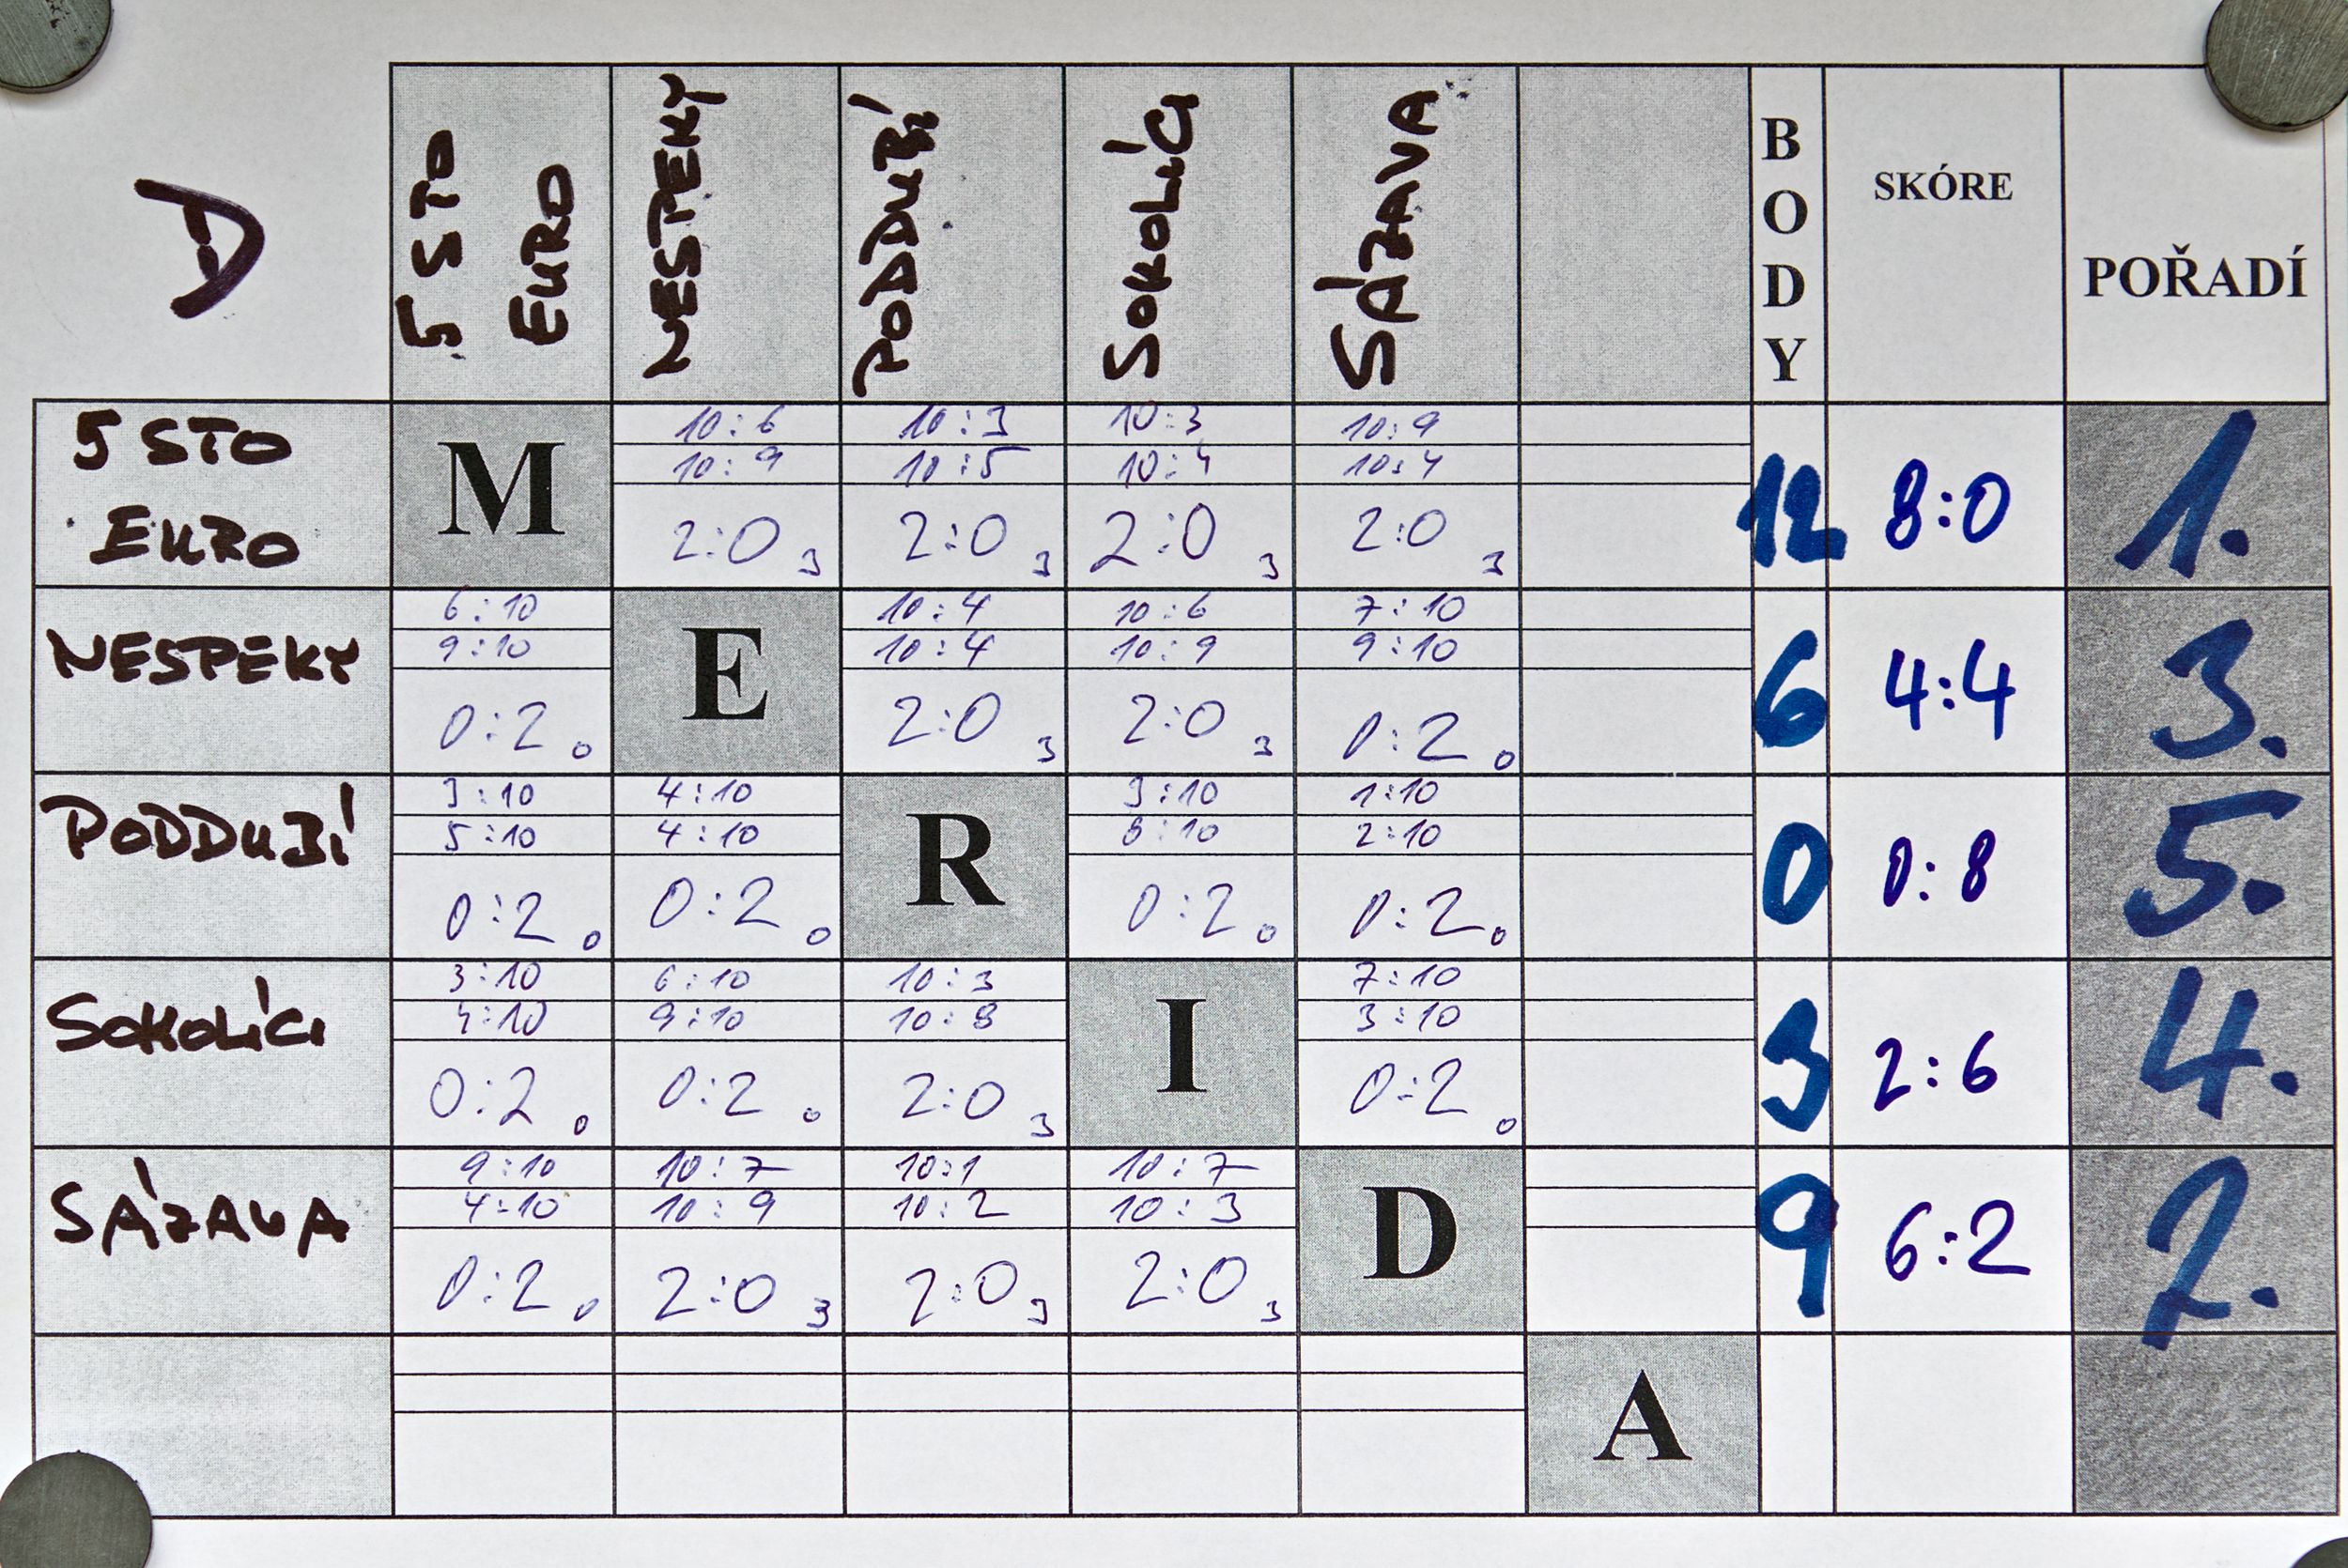 D
5 STO EURO NESPEKY PODDUBÍ SOKOLÍCI SÁZAVA BODY SKÓRE POŘADÍ
5 STO EURO
M
10:6 10:3 10:3 10:9
10:9 10:5 10:4 10:4
2:0 3 2:0 3 2:0 3 2:0 3
12 8:0 1.
NESPEKY
6:10 E 10:4 10:6 7:10
9:10 10:4 10:9 9:10
0:2 0 2:0 3 2:0 3 0:2 0
6 4:4 3.
PODDUBÍ
3:10 4:10 R 3:10 1:10
5:10 4:10 8:10 2:10
0:2 0 0:2 0 0:2 0 0:2 0
0 0:8 5.
SOKOLÍCI
3:10 6:10 10:3 I 7:10
4:10 9:10 10:8 3:10
0:2 0 0:2 0 2:0 3 0:2 0
3 2:6 4.
SÁZAVA
9:10 10:7 10:1 10:7 D
4:10 10:9 10:2 10:3
0:2 0 2:0 3 2:0 3 2:0 3
9 6:2 2.
A